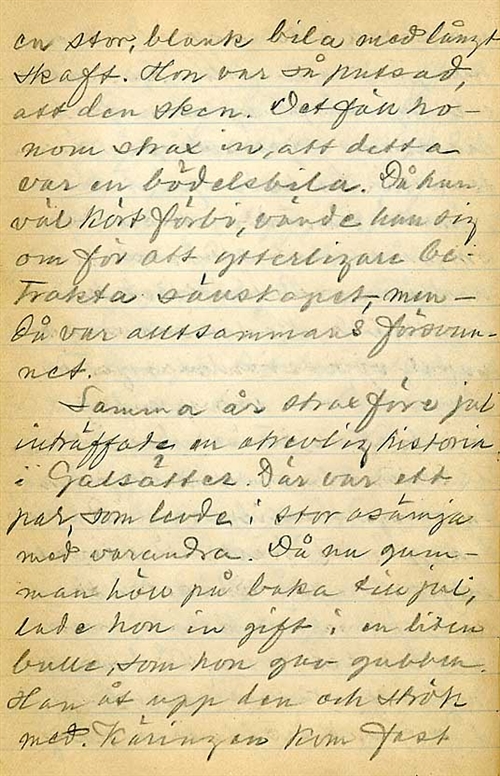 en stor, blank bila med långt
skaft. Hon var så putsad,
att den sken. Det föll ho-
nom strax in, att detta
var en bödelsbila. Då han
väl kört förbi, vände han sig
om för att ytterligare be-
trakta sällskapet, men -
då var alltsammans försvun-
net.
Samma år strax före jul
inträffade en otrevlig historia
i Galsätter. Där var ett
par, som levde i stor osämja
med varandra. Då nu gum-
man höll på baka till jul,
lade hon in gift i en liten
bulle, som hon gav gubben.
Han åt upp den och strök
med. Käringen kom fast